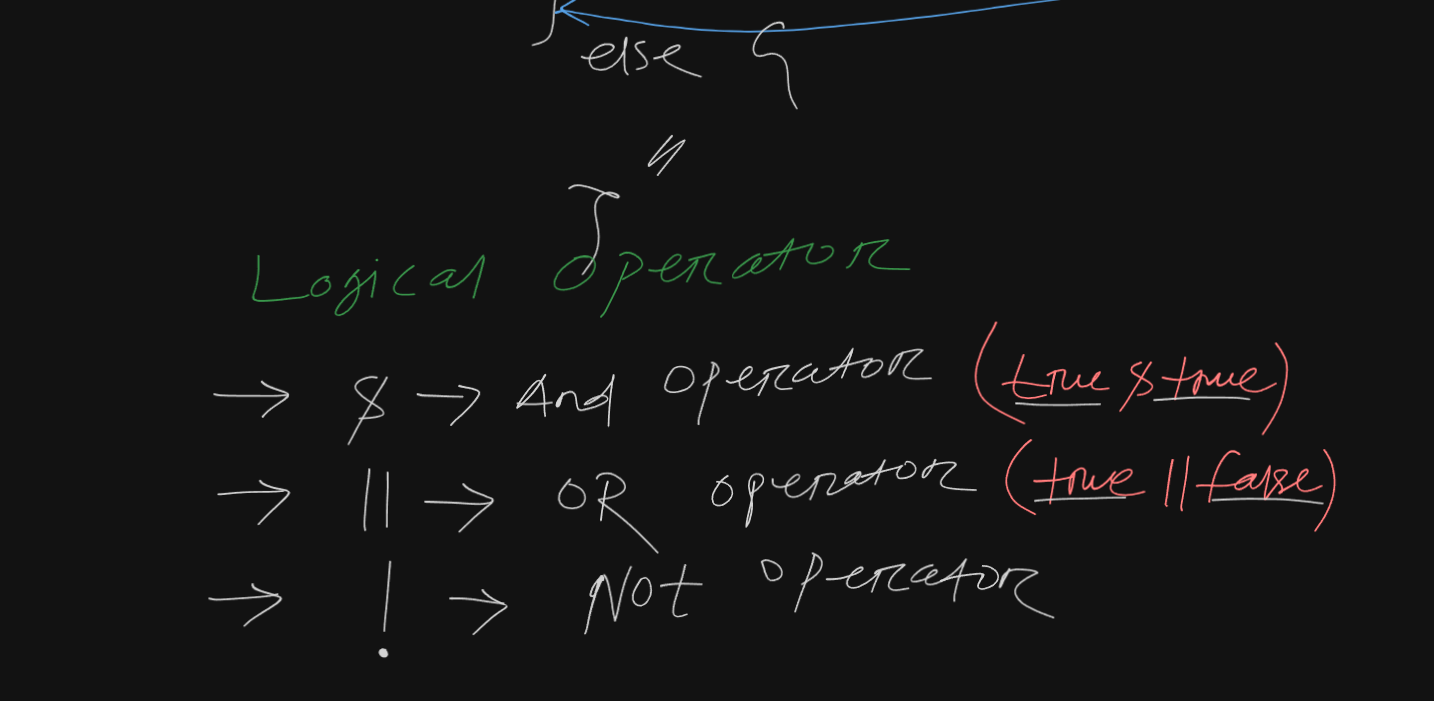 else {
//
}
Logical Operator
→ & → And operator (true & true)
→ || → OR operator (true || false)
→ ! → Not operator